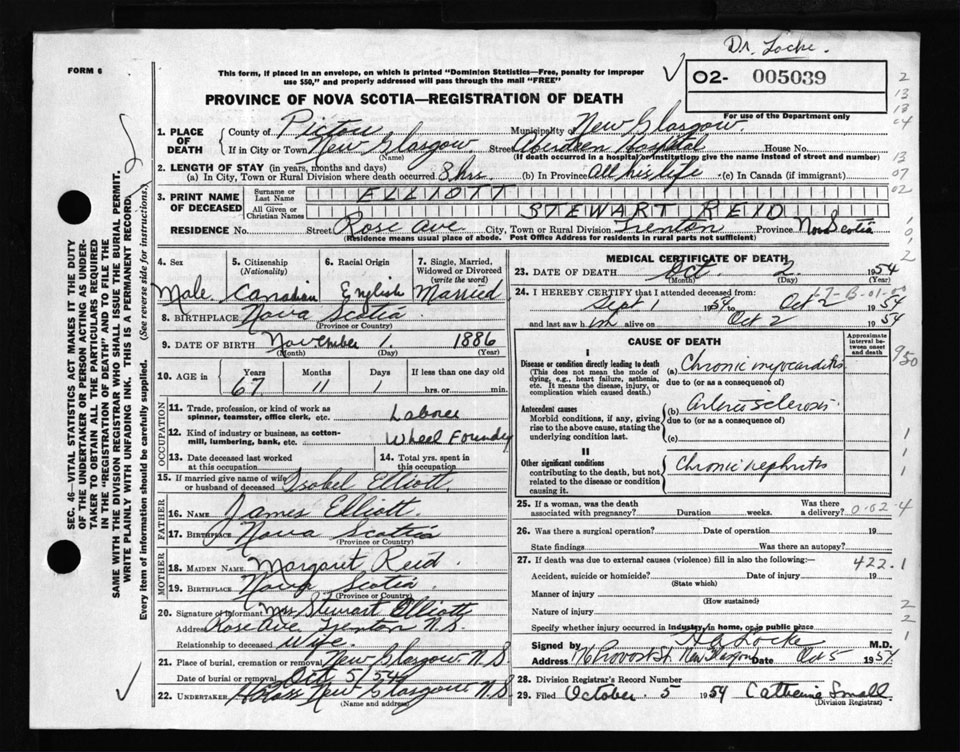 Dr. Locke.
FORM 6
This form, if placed in an envelope, on which is printed "Dominion Statistics—Free, penalty for improper
use $50," and properly addressed will pass through the mail "FREE"
02- 005039
PROVINCE OF NOVA SCOTIA—REGISTRATION OF DEATH
For use of the Department only
1. PLACE OF DEATH County of Pictou Municipality of New Glasgow
If in City or Town New Glasgow (Name) Street Aberdeen Hospital House No.
(If death occurred in a hospital or institution, give the name instead of street and number)
2. LENGTH OF STAY (in years, months and days)
(a) In City, Town or Rural Division where death occurred 8 hrs. (b) In Province All his life (c) In Canada (if immigrant)
3. PRINT NAME OF DECEASED Surname or Last Name ELLIOTT
All Given or Christian Names STEWART REID
RESIDENCE No. Street Rose Ave City, Town or Rural Division Trenton Province Nova Scotia
(Residence means usual place of abode. Post Office Address for residents in rural parts not sufficient)
4. Sex 5. Citizenship (Nationality) 6. Racial Origin 7. Single, Married, Widowed or Divorced (write the word)
Male Canadian English Married
8. BIRTHPLACE Nova Scotia
(Province or Country)
9. DATE OF BIRTH November 1. 1886
(Month) (Day) (Year)
10. AGE in Years Months Days If less than one day old
67 11 1 hrs. or min.
OCCUPATION
11. Trade, profession, or kind of work as spinner, teamster, office clerk, etc. Laborer
12. Kind of industry or business, as cotton-mill, lumbering, bank, etc. Wheel Foundry
13. Date deceased last worked at this occupation 14. Total yrs. spent in this occupation
15. If married give name of wife or husband of deceased Isobel Elliott
FATHER
16. NAME James Elliott
17. BIRTHPLACE Nova Scotia
(Province or Country)
MOTHER
18. MAIDEN NAME Margaret Reid
19. BIRTHPLACE Nova Scotia
(Province or Country)
20. Signature of Informant Mrs Stewart Elliott
Address Rose Ave Trenton N.S.
Relationship to deceased Wife
21. Place of burial, cremation or removal New Glasgow N.S.
Date of burial or removal Oct 5/54
22. UNDERTAKER New Glasgow N.S.
(Name and address)
MEDICAL CERTIFICATE OF DEATH
23. DATE OF DEATH Oct. 2 1954
(Month) (Day)
24. I HEREBY CERTIFY that I attended deceased from:
Sept 1 1954 to Oct 2 1954
and last saw him alive on Oct 2 1954
CAUSE OF DEATH
Approximate interval between onset and death
I
Disease or condition directly leading to death (a) Chronic myocarditis
(This does not mean the mode of dying, e.g., heart failure, asthenia, etc. It means the disease, injury, or complication which caused death.)
due to (or as a consequence of)
Antecedent causes (b) Arteriosclerosis
Morbid conditions, if any, giving rise to the above cause, stating the underlying condition last.
due to (or as a consequence of)
(c)
II
Other significant conditions Chronic nephritis
contributing to the death, but not related to the disease or condition causing it.
25. If a woman, was the death associated with pregnancy? Duration weeks. Was there a delivery?
26. Was there a surgical operation? Date of operation 19
State findings Was there an autopsy?
27. If death was due to external causes (violence) fill in also the following: 422.1
Accident, suicide or homicide? Date of injury 19
(State which)
Manner of injury
(How sustained)
Nature of injury
Specify whether injury occurred in industry, in home, or in public place
Signed by H A Locke M.D.
Address Provost St. New Glasgow Date Oct 5 1954
28. Division Registrar's Record Number
29. Filed October 5 1954 Catherine Small
(Division Registrar)
SEC. 46—VITAL STATISTICS ACT MAKES IT THE DUTY
OF THE UNDERTAKER OR PERSON ACTING AS UNDER-
TAKER TO OBTAIN ALL THE PARTICULARS REQUIRED
IN THE "REGISTRATION OF DEATH" AND TO FILE THE
SAME WITH THE DIVISION REGISTRAR WHO SHALL ISSUE THE BURIAL PERMIT.
WRITE PLAINLY WITH UNFADING INK. THIS IS A PERMANENT RECORD.
Every item of information should be carefully supplied. (See reverse side for instructions.)